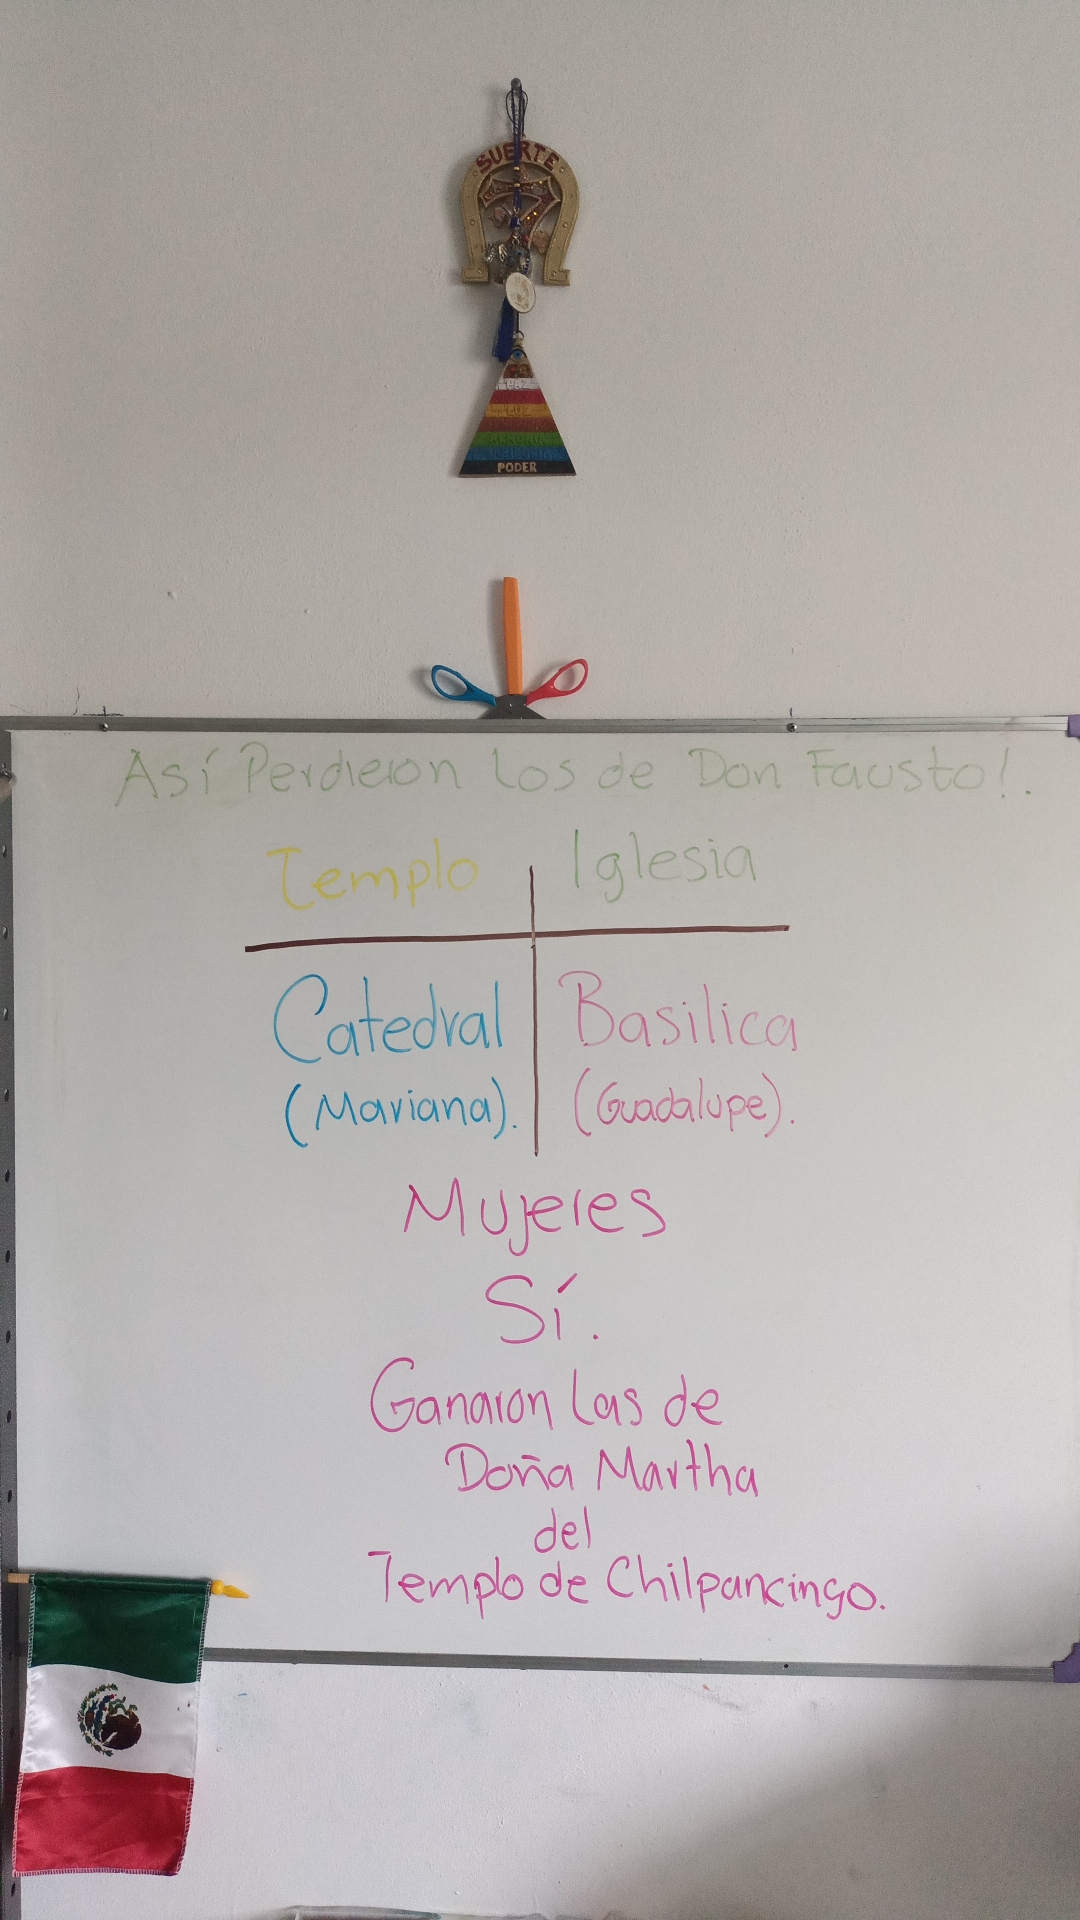 SUERTE
7
PODER
Así Perdieron Los de Don Fausto!.
Templo Iglesia
Catedral Basilica
(Mariana). (Guadalupe).
Mujeres
Sí.
Ganaron Las de
Doña Martha
del
Templo de Chilpancingo.